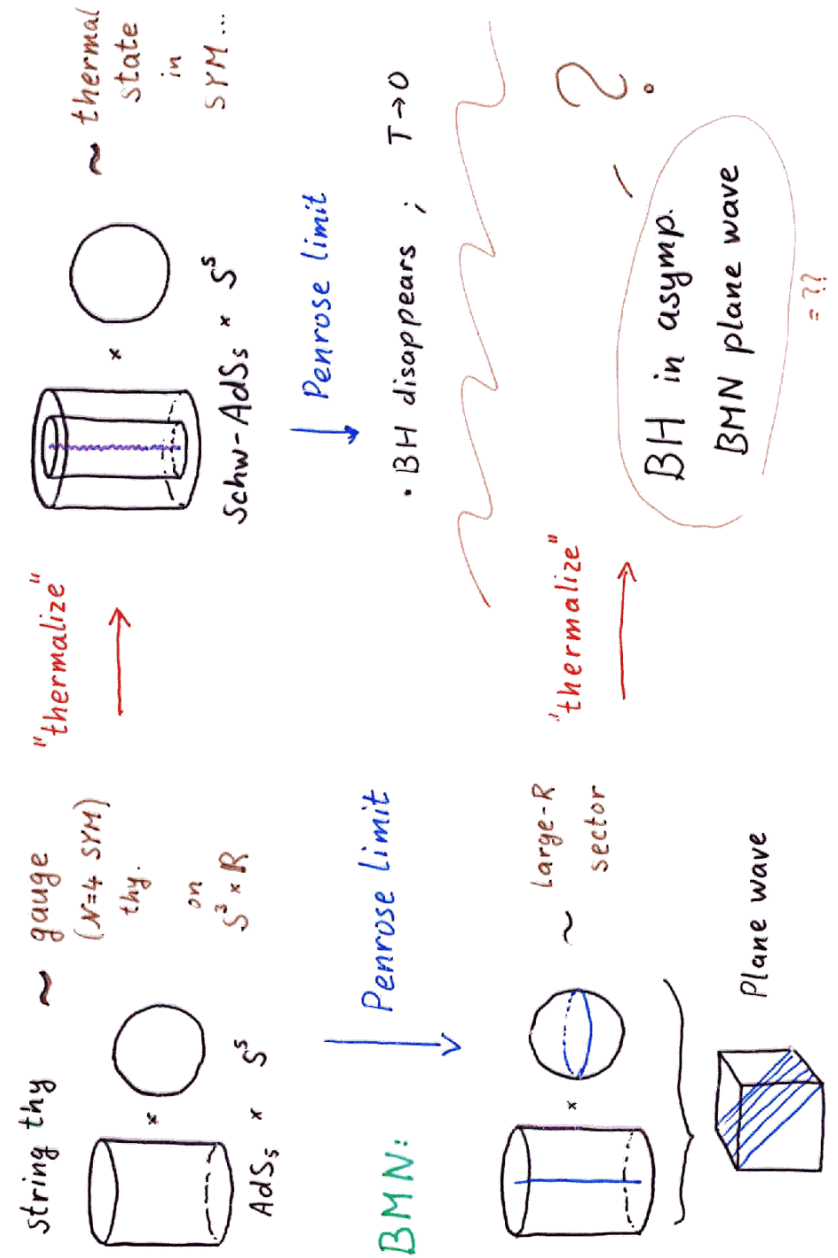 string thy ~ gauge
(N=4 SYM)
thy.
on
S³ × R
×
AdS₅ × S⁵
"thermalize"
×
Schw-AdS₅ × S⁵
~ thermal
state
in
SYM...
BMN:
Penrose limit
Penrose limit
• BH disappears ; T→0
×
~ Large-R
sector
Plane wave
"thermalize"
BH in asymp.
BMN plane wave
?
= ??